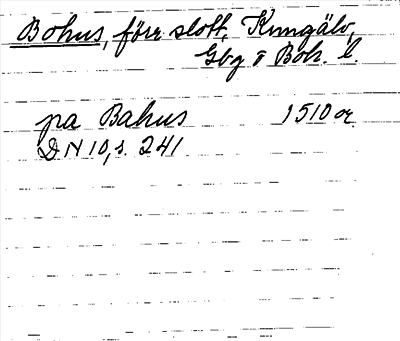 Bohus, förr slott, Kungälv,
Gbg o Boh. l.
pa Bahus 1510 or.
DN 10, s. 241